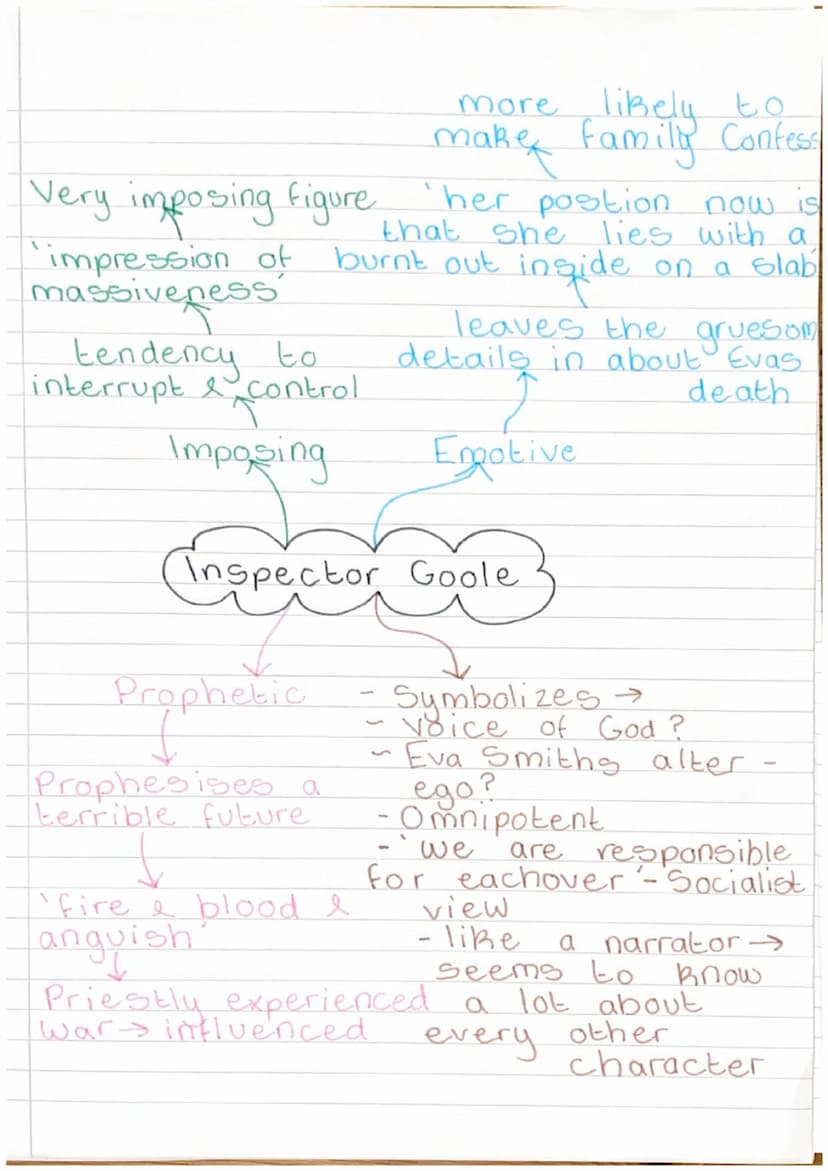 more likely to
make family Confess
'her postion now is
that she lies with a
burnt out inside on a slab
leaves the gruesom
details in about Evas
death
Emotive
Very imposing figure
'impression of
massiveness'
tendency to
interrupt & control
Imposing
Inspector Goole
Prophetic
Prophesises a
terrible future
'fire & blood &
anguish'
Priestly experienced
war → influenced
- Symbolizes →
- voice of God?
- Eva Smiths alter-
ego?
- Omnipotent
- 'we are responsible
for eachover' - Socialist
view
- like a narrator →
seems to know
a lot about
every other
character